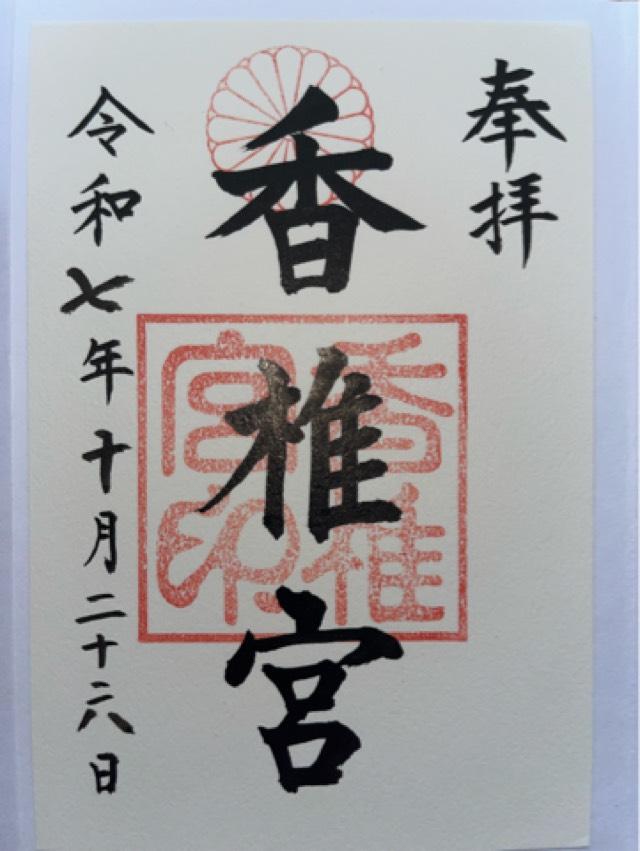 奉拝
香椎宮
香椎
宮印
令和七年十月二十六日